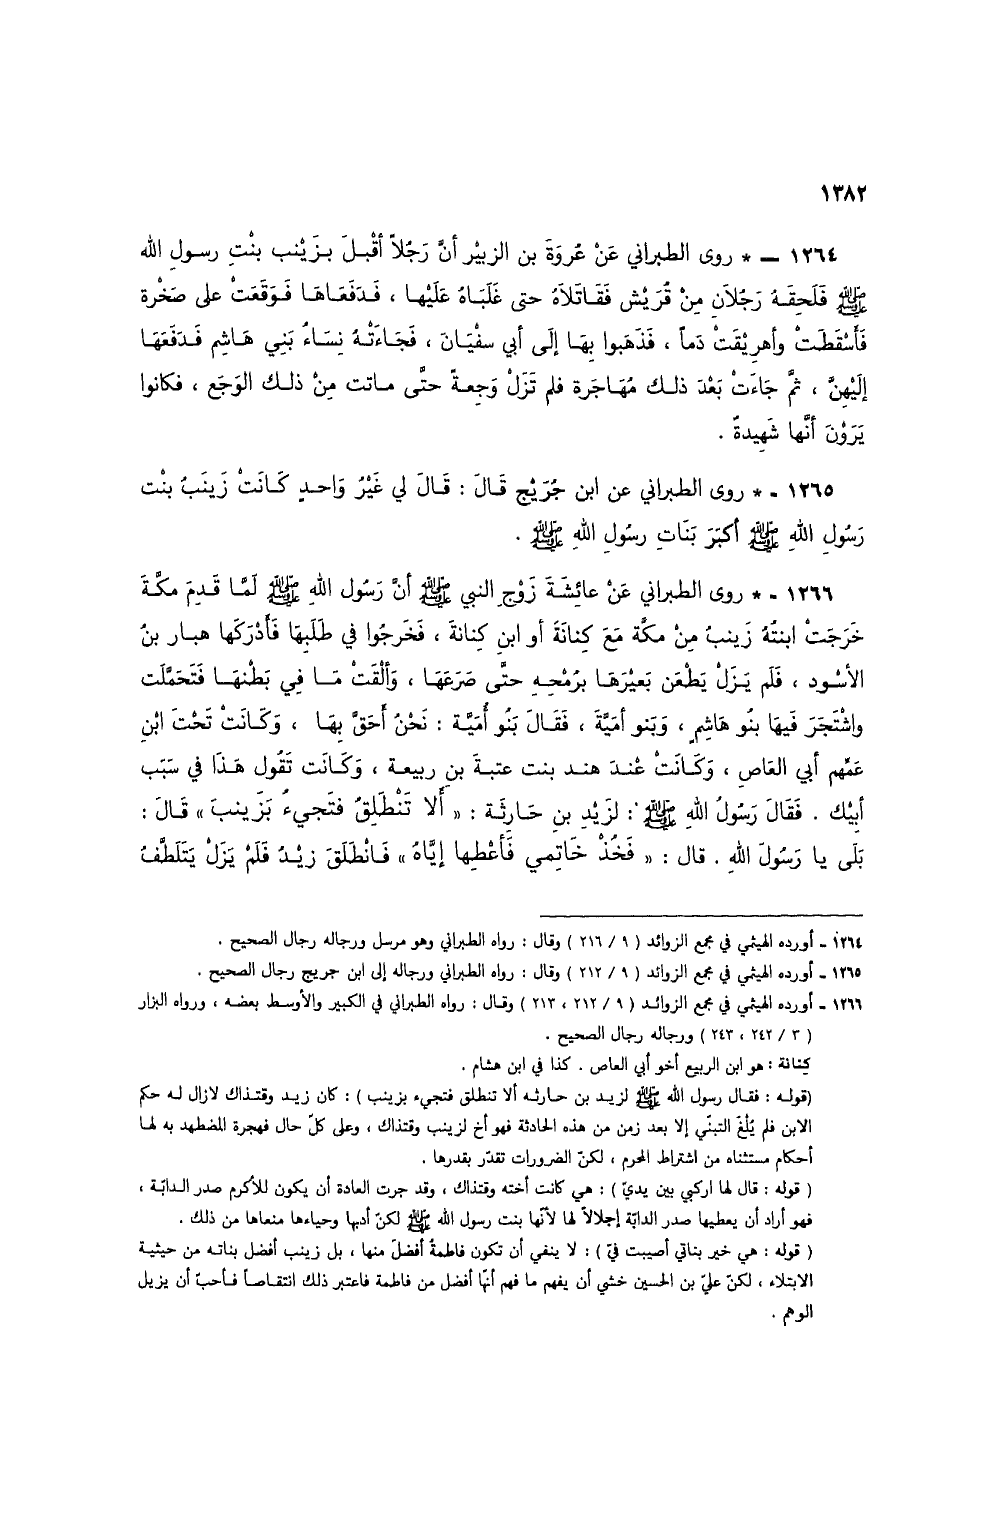 ١٣٨٢
١٢٦٤ ــ * روى الطبراني عَنْ عُروَةَ بن الزبيْر أنَّ رَجُلاً أقْبـلَ بـزَيْنب بنْتِ رسـولِ الله
ﷺ فَلَحِقَـهُ رَجُلاَنِ مِنْ قُرَيْش فَقَـاتَلاَهُ حتى غَلَبَـاهُ عَلَيْهـا ، فَـدَفَعَـاهَـا فَـوَقَعَتْ على صَخْرة
فَأَسْقَطَتْ وأهرِيقَتْ دَماً ، فَذَهَبوا بِهَـا إلَى أبي سفْيَـانَ ، فَجَـاءَتْـهُ نِسَـاءُ بَنِي هَـاشِم فَـدَفَعَهَـا
إلَيْهِنَّ ، ثمَّ جَاءَتْ بَعْدَ ذلـك مُهَـاجَرة فلم تَزَلْ وَجِعـةً حتَّى مـاتت مِنْ ذلـك الوَجَع ، فكانوا
يَرَوْنَ أنَّها شَهِيدةٌ .
١٢٦٥ ـ * روى الطبراني عن ابن جُرَيْج قَـالَ : قَـالَ لي غَيْرُ وَاحـدٍ كَـانَتْ زَينَبُ بنْت
رَسُولِ اللهِ ﷺ أكبَرَ بَنَاتِ رسُولِ اللهِ ﷺ .
١٢٦٦ ـ * روى الطبراني عَنْ عائِشَةَ زَوْجِ النبي ﷺ أنَّ رَسُول اللهِ ﷺ لَمَّـا قَـدِمَ مكَّـةَ
خَرَجَتْ ابنتُهُ زَينبُ مِنْ مكّة مَعَ كِنانَةَ أو ابنِ كِنانةَ ، فَخَرجُوا في طَلَبِهَا فَأَدْرَكَها هبار بنُ
الأسْود ، فَلَم يَـزَلْ يَطْعَن بَعيْرَهَـا برُمْحِـهِ حتَّى صَرَعَهَـا ، وَألْقَتْ مَـا فِي بَطْنهَـا فَتَحَمَّلَت
واشْتَجَرَ فيهَا بنُو هَاشِمٍ ، وَبَنو أمَيَّةَ ، فَقَـالَ بَنُو أُمَيَّـة : نَحْنُ أحَقُّ بِهَـا ، وَكَـانَتْ تَحْتَ ابْنِ
عَمِّهم أبي العَاصِ ، وَكَـانَتْ عْنـدَ هنـد بنت عتبـةَ بنِ ربيعـة ، وَكَـانَت تَقُول هَـذَا في سَبَب
أبيْك . فَقَالَ رَسُولُ اللهِ ﷺ : لزَيْدِ بن حَـارثَـة : « أَلا تَنْطَلِقُ فتَجيءُ بَزَينبَ » قَـالَ :
بَلَى يا رَسُولَ اللهِ . قال : « فَخُذْ خَاتِمي فَأَعْطِها إيَّاهُ » فَـانْطَلَقَ زيْـدُ فَلَمْ يَزَلْ يَتَلَطَّفُ
١٢٦٤ ـ أورده الهيثمي في مجمع الزوائد ( ٩ / ٢١٦ ) وقال : رواه الطبراني وهو مرسل ورجاله رجال الصحيح .
١٢٦٥ ـ أورده الهيثمي في مجمع الزوائد ( ٩ / ٢١٢ ) وقال : رواه الطبراني ورجاله إلى ابن جريج رجال الصحيح .
١٢٦٦ ـ أورده الهيثمي في مجمع الزوائـد ( ٩ / ٢١٢ ، ٢١٣ ) وقـال : رواه الطبراني في الكبير والأوسط بعضـه ، ورواه البزار
( ٣ / ٢٤٢ ، ٢٤٣ ) ورجاله رجال الصحيح .
كِنانة : هو ابن الربيع أخو أبي العاص . كذا في ابن هشام .
(قولـه : فقـال رسول الله ﷺ لزيـد بن حـارثـه ألا تنطلق فتجيء بزينب ) : كان زيـد وقتـذاك لازال لـه حكم
الابن فلم يُلْغَ التبنّي إلا بعد زمن من هذه الحادثة فهو أخ لزينب وقتذاك ، وعلى كلّ حال فهجرة المضطهد به لها
أحكام مستثناه من اشتراط المحرم ، لكنّ الضرورات تقدّر بقدرها .
( قوله : قال لها اركبي بين يديّ ) : هي كانت أخته وقتذاك ، وقد جرت العادة أن يكون للأكرم صدر الـدابّـة ،
فهو أراد أن يعطيها صدر الدابّة إجلالاً لها لأنّها بنت رسول الله ﷺ لكنّ أدبها وحياءها منعاها من ذلك .
( قوله : هي خير بناتي أصيبت فيّ ) : لا ينفي أن تكون فاطمةُ أفضلَ منها ، بل زينب أفضل بناتـه من حيثيـة
الابتلاء ، لكنّ عليّ بن الحسين خشي أن يفهم ما فهم أنّها أفضل من فاطمة فاعتبر ذلك انتقـاصـاً فـأحبّ أن يزيـل
الوهم .